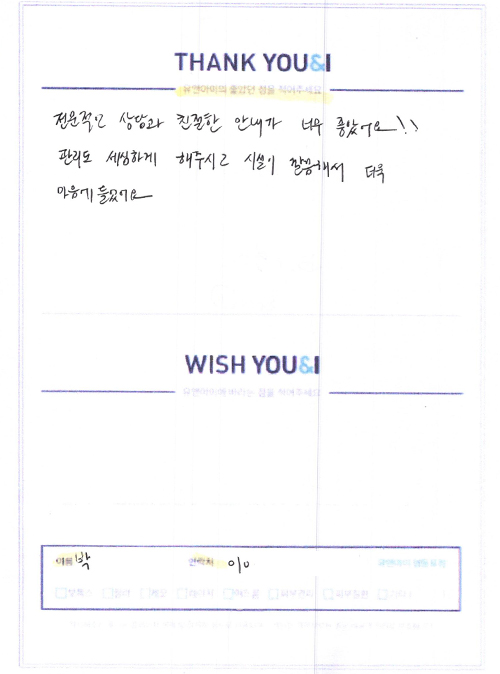 THANK YOU&I
유앤아이의 좋았던 점을 적어주세요
전문적인 상담과 친절한 안내가 너무 좋았어요!!
관리도 세심하게 해주시고 시설이 깔끔해서 더욱
마음에 들었어요
WISH YOU&I
유앤아이에 바라는 점을 적어주세요
이름 박 연락처 010 유앤아이
보톡스 필러 레이저 피부관리 기타